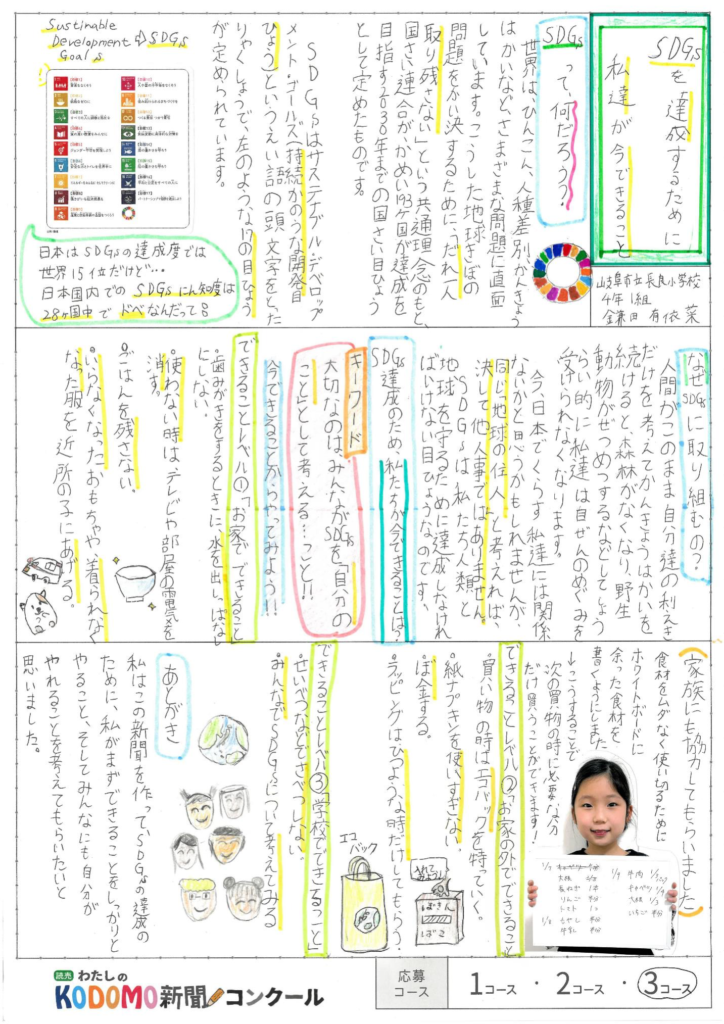 SDGsを達成するために
私達が今できること
山岐阜市立長良小学校
4年1組
SDGsって、何だろう?
世界は、ひんこん、人種差別、かんきょう
はかいなどさまざまな問題に直面
しています。こうした地球きぼの
問題をかい決するために、「だれ一人
取り残さない」という共通理念のもと、
国さい連合がかめい193ヶ国が達成を
目指す2030年までの国さい目ひょう
として定めたものです。
SDGsはサステナブル・デベロップ
メント・ゴールズ(持続かのうな開発目
ひょう)というえい語の頭文字をとった
りゃくしょうで、左のような、17の目ひょう
が定められています。
Sustinable
Development ⇨ SDGs
Goals
日本はSDGsの達成度では
世界15位だけど…
日本国内でのSDGsにん知度は
28ヶ国中でドベなんだって
なぜSDGsに取り組むの?
人間がこのまま自分達の利えき
だけを考えてかんきょうはかいを
続けると、森林がなくなり、野生
動物がぜつめつするなどしてしょう
らい的に私達は自ぜんのめぐみを
受けられなくなります。
今、日本でくらす私達には関係
ないかと思うかもしれませんが、
同じ「地球の住人」と考えれば、
決して他人事ではありません。
SDGsは私たち人類と
地球を守るために達成しなけれ
ばいけない目ひょうなのです。
SDGs達成のため、私たちが今できることは?
キーワード
大切なのは、みんながSDGsを「自分の
こと」として考える…こと!!
今できることからやってみよう!!
できることレベル①「お家でできること」
・歯みがきをするときに、水を出しっぱなし
にしない。
・使わない時はテレビや部屋の電気を
消す。
・ごはんを残さない。
・いらなくなったおもちゃや、着られなく
なった服を近所の子にあげる。
家族にも協力してもらいました
食材をムダなく使い切るために
ホワイトボードに
余った食材を
書くようにしました
→こうすることで
次の買い物の時に必要な分
だけ買うことができます!
できることレベル②「お家の外でできること」
・買い物の時はエコバックを持っていく。
・紙ナプキンを使いすぎない。
・ぼ金する。
・ラッピングはひつような時だけしてもらう。
エコ
バック
ぼきん
ばこ
できることレベル③「学校でできること」
・せいべつなどでさべつしない。
・みんなでSDGsについて考えてみる
あとがき
私はこの新聞を作って、SDGsの達成の
ために、私がまずできることをしっかりと
やること、そしてみんなにも自分が
やれることを考えてもらいたいと
思いました。
読売 わたしの
KODOMO新聞コンクール
応募
コース
1コース・2コース・3コース